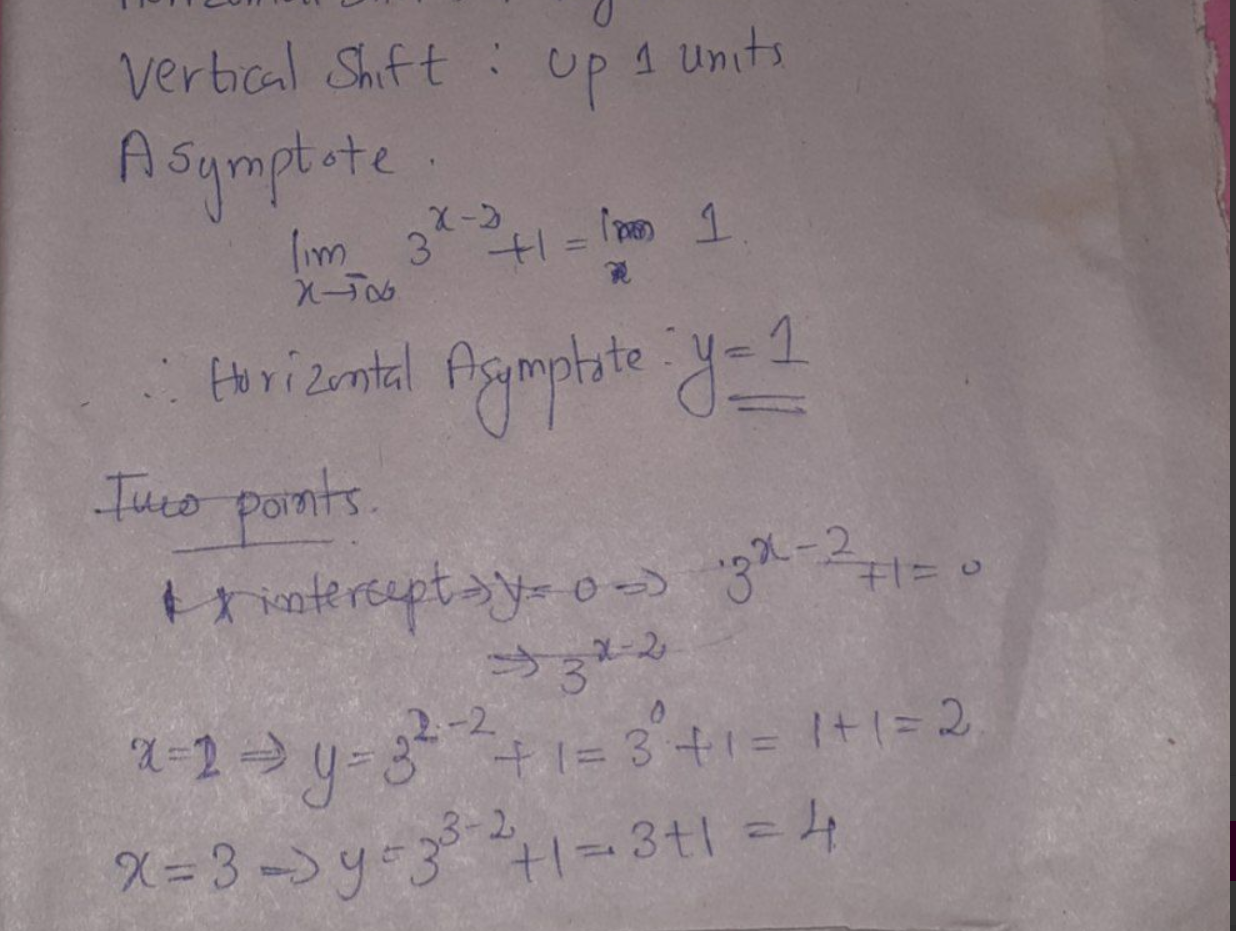 Vertical Shift : Up 1 units
Asymptote.
lim x→-∞ 3^{x-2}+1 = lim x 1.
∴ Horizontal Asymptote : y=1
Two points.
x intercept ⇒ y=0 ⇒ 3^{x-2}+1=0
⇒ 3^{x-2}
x=2 ⇒ y=3^{2-2}+1=3^0+1=1+1=2
x=3 ⇒ y=3^{3-2}+1=3+1=4